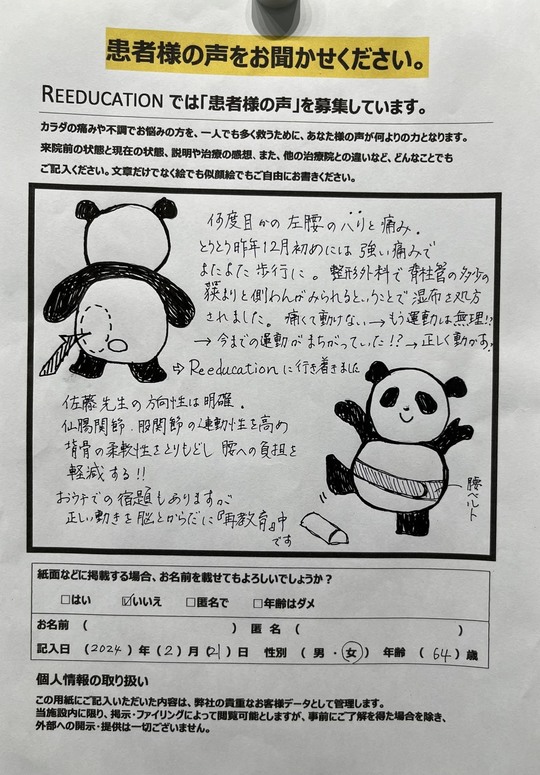 患者様の声をお聞かせください。
REEDUCATION では「患者様の声」を募集しています。
カラダの痛みや不調でお悩みの方を、一人でも多く救うために、あなた様の声が何よりの力となります。
来院前の状態と現在の状態、説明や治療の感想、また、他の治療院との違いなど、どんなことでも
ご記入ください。文章だけでなく絵でも似顔絵でもご自由にお書きください。
何度目かの左腰のハリと痛み.
とうとう昨年12月初めには強い痛みで
よたよた歩行に。整形外科で脊柱管の多少の
狭まりと側わんがみられるということで湿布を処方
されました。痛くて動けない→もう運動は無理!?
→今までの運動がまちがっていた!?→正しく動かす。
⇨ Reeducationに行き着きました
佐藤先生の方向性は明確.
仙腸関節.股関節の連動性を高め
背骨の柔軟性をとりもどし 腰への負担を
軽減する!!
おウチでの宿題もありますが
正しい動きを脳とからだに『再教育』中
です
腰ベルト
紙面などに掲載する場合、お名前を載せてもよろしいでしょうか?
□はい ☑いいえ □匿名で □年齢はダメ
お名前 ( ) 匿名 ( )
記入日 (2024) 年 (2) 月 (21) 日 性別 (男・女) 年齢 (64) 歳
個人情報の取り扱い
この用紙にご記入いただいた内容は、弊社の貴重なお客様データとして管理します。
当施設内に限り、掲示・ファイリングによって閲覧可能としますが、事前にご了解を得た場合を除き、
外部への開示・提供は一切ございません。